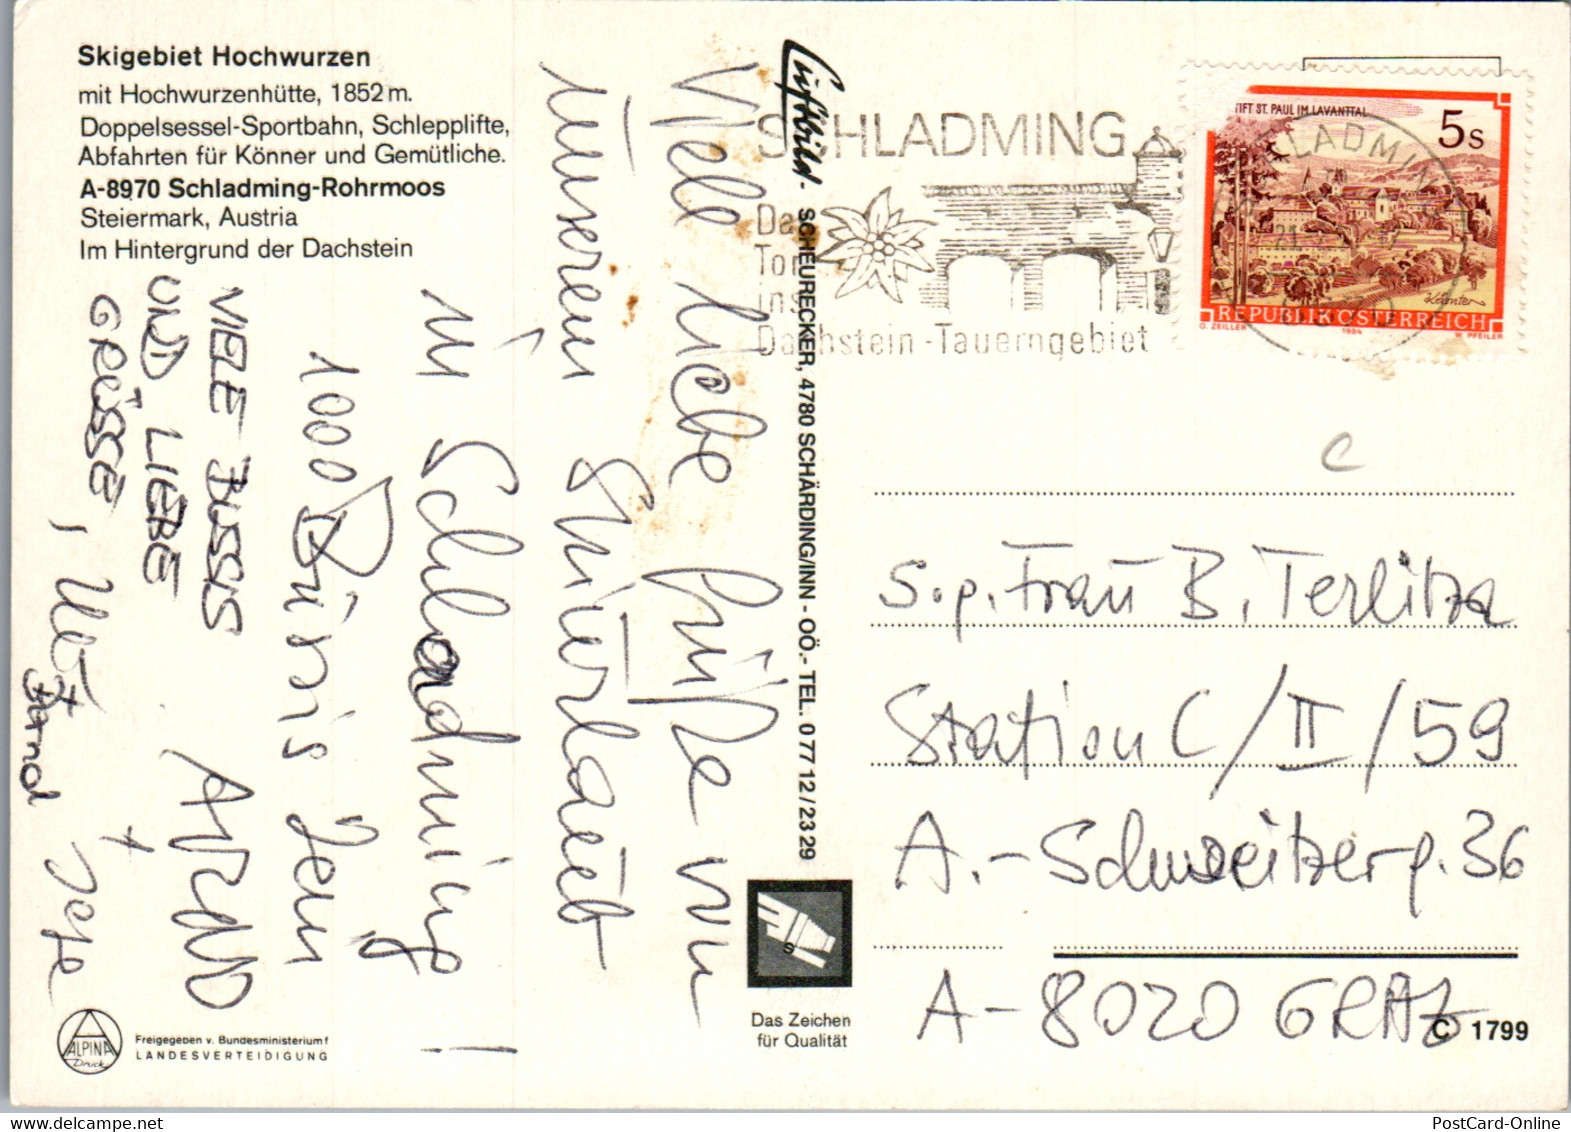 Skigebiet Hochwurzen
mit Hochwurzenhütte, 1852 m.
Doppelsessel-Sportbahn, Schlepplifte,
Abfahrten für Könner und Gemütliche.
A-8970 Schladming-Rohrmoos
Steiermark, Austria
Im Hintergrund der Dachstein
Viele liebe Grüße von
unserem Skiurlaub
in Schladming!
1000 Bussis
VIELE BUSSIS
UND LIEBE
GRÜSSE,
ARND
+
Bernd
Luftbild-
SCHEURECKER, 4780 SCHÄRDING/INN - OÖ.- TEL. 0 77 12 / 23 29
SCHLADMING
Dachstein-Tauerngebiet
TIFT ST. PAUL IM LAVANTTAL
5 S
REPUBLIK ÖSTERREICH
O. ZEILLER 1984 W. PFEILER
C
S.p. Frau B. Terlitza
Station C/II/59
A.-Schweitzerg. 36
A-8020 GRAZ
C 1799
S
Das Zeichen
für Qualität
ALPINA
Druck
Freigegeben v. Bundesministerium f
LANDESVERTEIDIGUNG
PostCard-Online